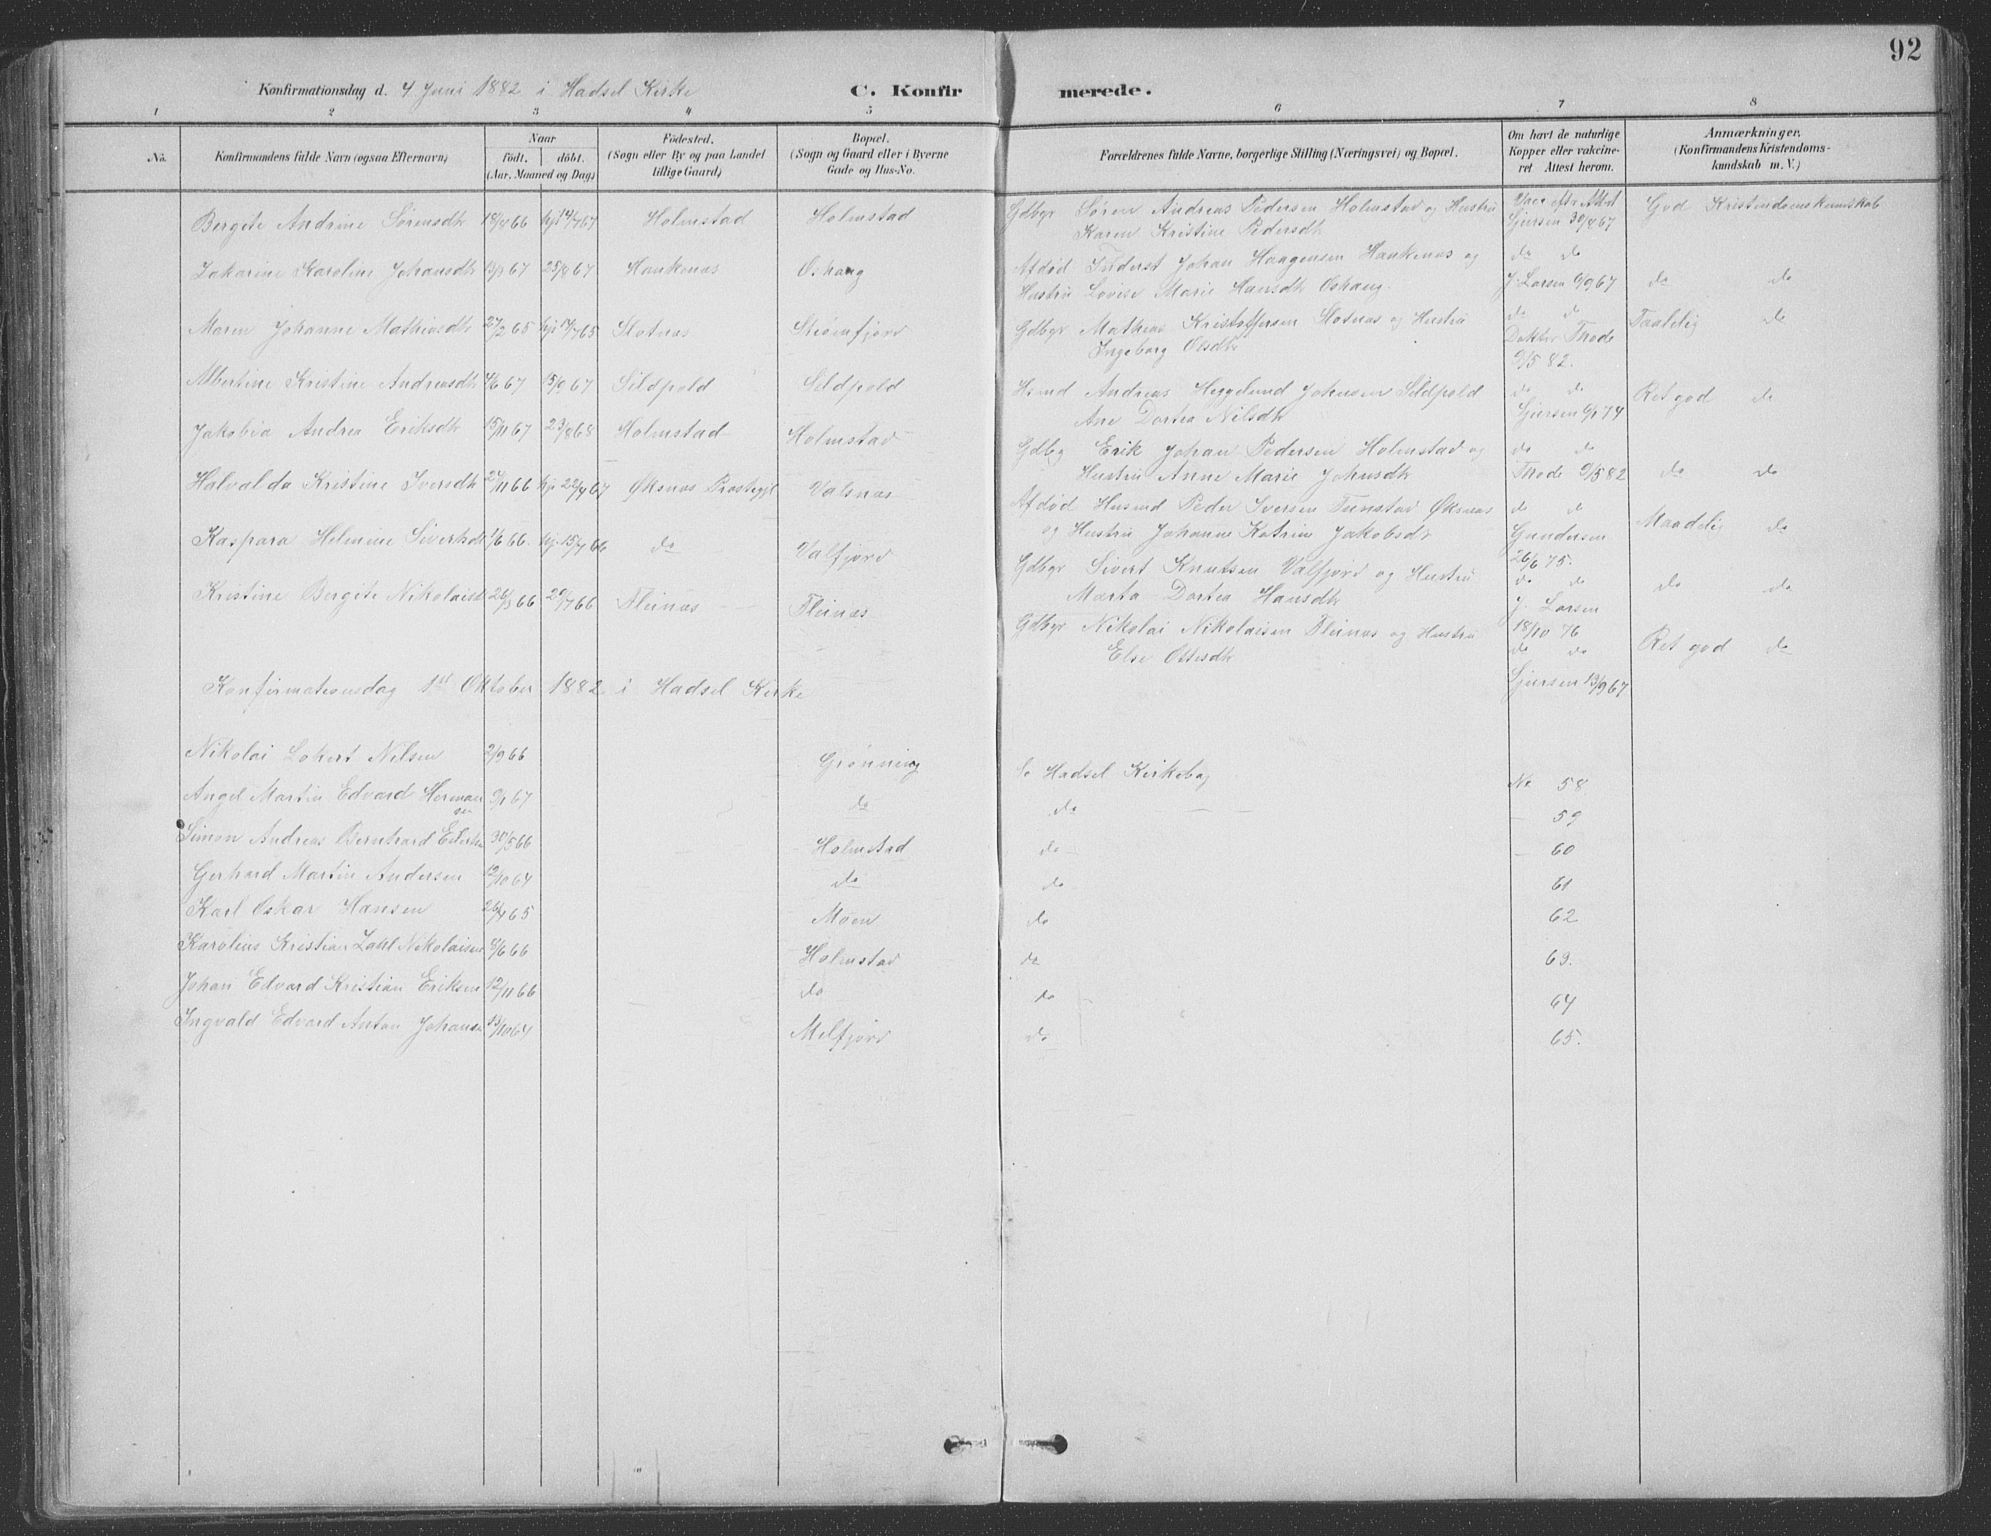 92
Konfirmationsdag d. 4 Juni 1882 i Hadsel Kirke C. Konfirmerede.
1 2 3 4 5 6 7 8
No. Konfirmandens fulde Navn (ogsaa Efternavn) Naar födt. döbt. (Aar, Maaned og Dag) Födested. (Sogn eller By og paa Landet tillige Gaard) Bopæl. (Sogn og Gaard eller i Byerne Gade og Hus-No. Forældrenes fulde Navne, borgerlige Stilling (Næringsvei) og Bopæl. Om havt de naturlige Kopper eller vakcineret Attest herom. Anmærkninger. (Konfirmandens Kristendomskundskab m. V.)
Bergite Andrine Sörensdtr 18/4 66 hj 14/7 67 Holmstad Holmstad Gdbgr Sören Andreas Pedersen Holmstad og Hustru
Karen Kristine Pedersdtr Vacc. efter Attest Gjersen 30/8 67 God Kristendomskundskab
Zakarine Karoline Johansdtr 13/3 67 25/8 67 Haukenæs Oshaug Afdød Inderst Johan Haagensen Haukenæs og
Hustru Lovise Marie Hansdtr Oshaug. do do J. Larsen 9/9 67 do do
Maren Johanne Mathiasdtr 27/2 65 hj 17/7 65 Slotnæs Strömfjord Gdbgr Mathias Kristoffersen Slotnæs og Hustru
Ingeborg Olsdtr do do Doktor Thode 9/5 82. Taalelig do
Albertine Kristine Andreasdtr 4/6 67 15/9 67 Sildpold Sildpold Hsmd Andreas Heggelund Johnsen Sildpold
Ane Dortea Nilsdtr do do Gjersen 6/1 74 Ret god do
Jakobia Andrea Eriksdtr 15/11 67 23/8 68 Holmstad Holmstad Gdbg Erik Johan Pedersen Holmstad og
Hustru Anne Marie Johnsdtr do do Thode 9/5 82 do do
Halvalda Kristine Iversdtr 24/11 66 hj 22/4 67 Øksnæs Prestegjl Valsnæs Afdød Husmd Peder Iversen Tunstad Øksnæs
og Hustru Johanne Katrine Jakobsdtr do do Gundersen 26/6 75. Maadelig do
Kaspara Helmine Sivertsdtr 1/6 66. hj. 15/7 66 do Valfjord Gdbgr Sivert Knutsen Valfjord og Hustru
Marta Dortea Hansdtr do do J. Larsen 18/10 76 do do
Kristine Bergite Nikolaisd 26/3 66 29/7 66 Fleinæs Fleinæs Gdbgr Nikolai Nikolaisen Fleinæs og Hustru
Else Ottesdtr do do Gjersen 13/9 67 Ret god do
Konfirmationsdag 1st Oktober 1882 i Hadsel Kirke
Nikolai Lohert Nilsen 2/9 66 Grönning Se Hadsel Kirkebog No 58
Angel Martin Edvard Hermansen 9/1 67 do do 59
Simon Andreas Bernhard 30/5 66 Holmstad do 60
Gerhard Martin Andersen 12/10 64 do do 61
Karl Oskar Hansen 26/4 65 Moen do 62
Karolius Kristian Zahl Nikolaisen 6/6 66 Holmstad do 63.
Johan Edvard Kristian Eriksen 12/11 66 do do 64
Ingvald Edvard Anton Johanse 13/10 64 Melfjord do 65.